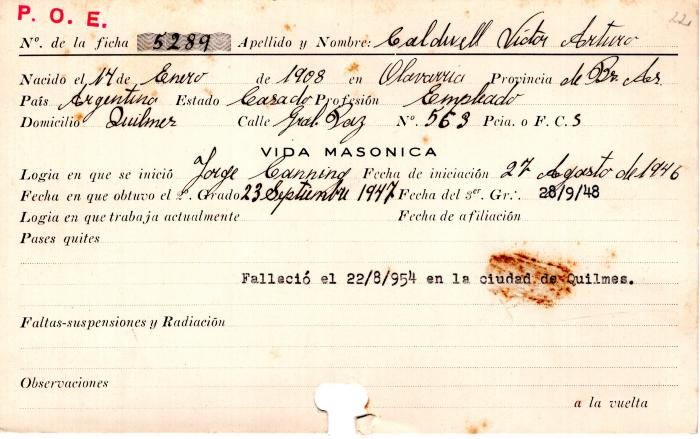 P. O. E.
Nº. de la ficha 5289 Apellido y Nombre: Caldwell Víctor Arturo
Nacido el 14 de Enero de 1908 en Olavarria Provincia de Bs. As.
País Argentina Estado Casado Profesión Empleado
Domicilio Quilmes Calle Gral. Paz Nº. 563 Pcia. o F. C. S
VIDA MASONICA
Logia en que se inició Jorge Canning Fecha de iniciación 27 Agosto de 1946
Fecha en que obtuvo el 2º. Grado 23 Septiembre 1947 Fecha del 3er. Gr∴. 28/9/48
Logia en que trabaja actualmente Fecha de afiliación
Pases quites
Falleció el 22/8/954 en la ciudad de Quilmes.
Faltas-suspensiones y Radiación
Observaciones
a la vuelta